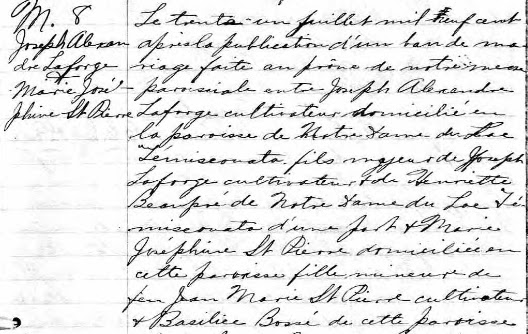 M. 8
Joseph Alexan
dre Laforge
&
Marie José-
phine St Pierre
Le trente-un juillet mil neuf cent
après la publication d'un ban de ma
riage faite au prône de notre messe
paroissiale entre Joseph Alexandre
Laforge cultivateur domicilié en
la paroisse de Notre Dame du Lac
Témiscouata fils majeur de Joseph
Laforge cultivateur & de Henriette
Beaupré de Notre Dame du Lac Té
miscouata d'une part & Marie
Joséphine St Pierre domiciliée en
cette paroisse fille mineure de
feu Jean Marie St Pierre cultivateur
& Basilice Bossé de cette paroisse